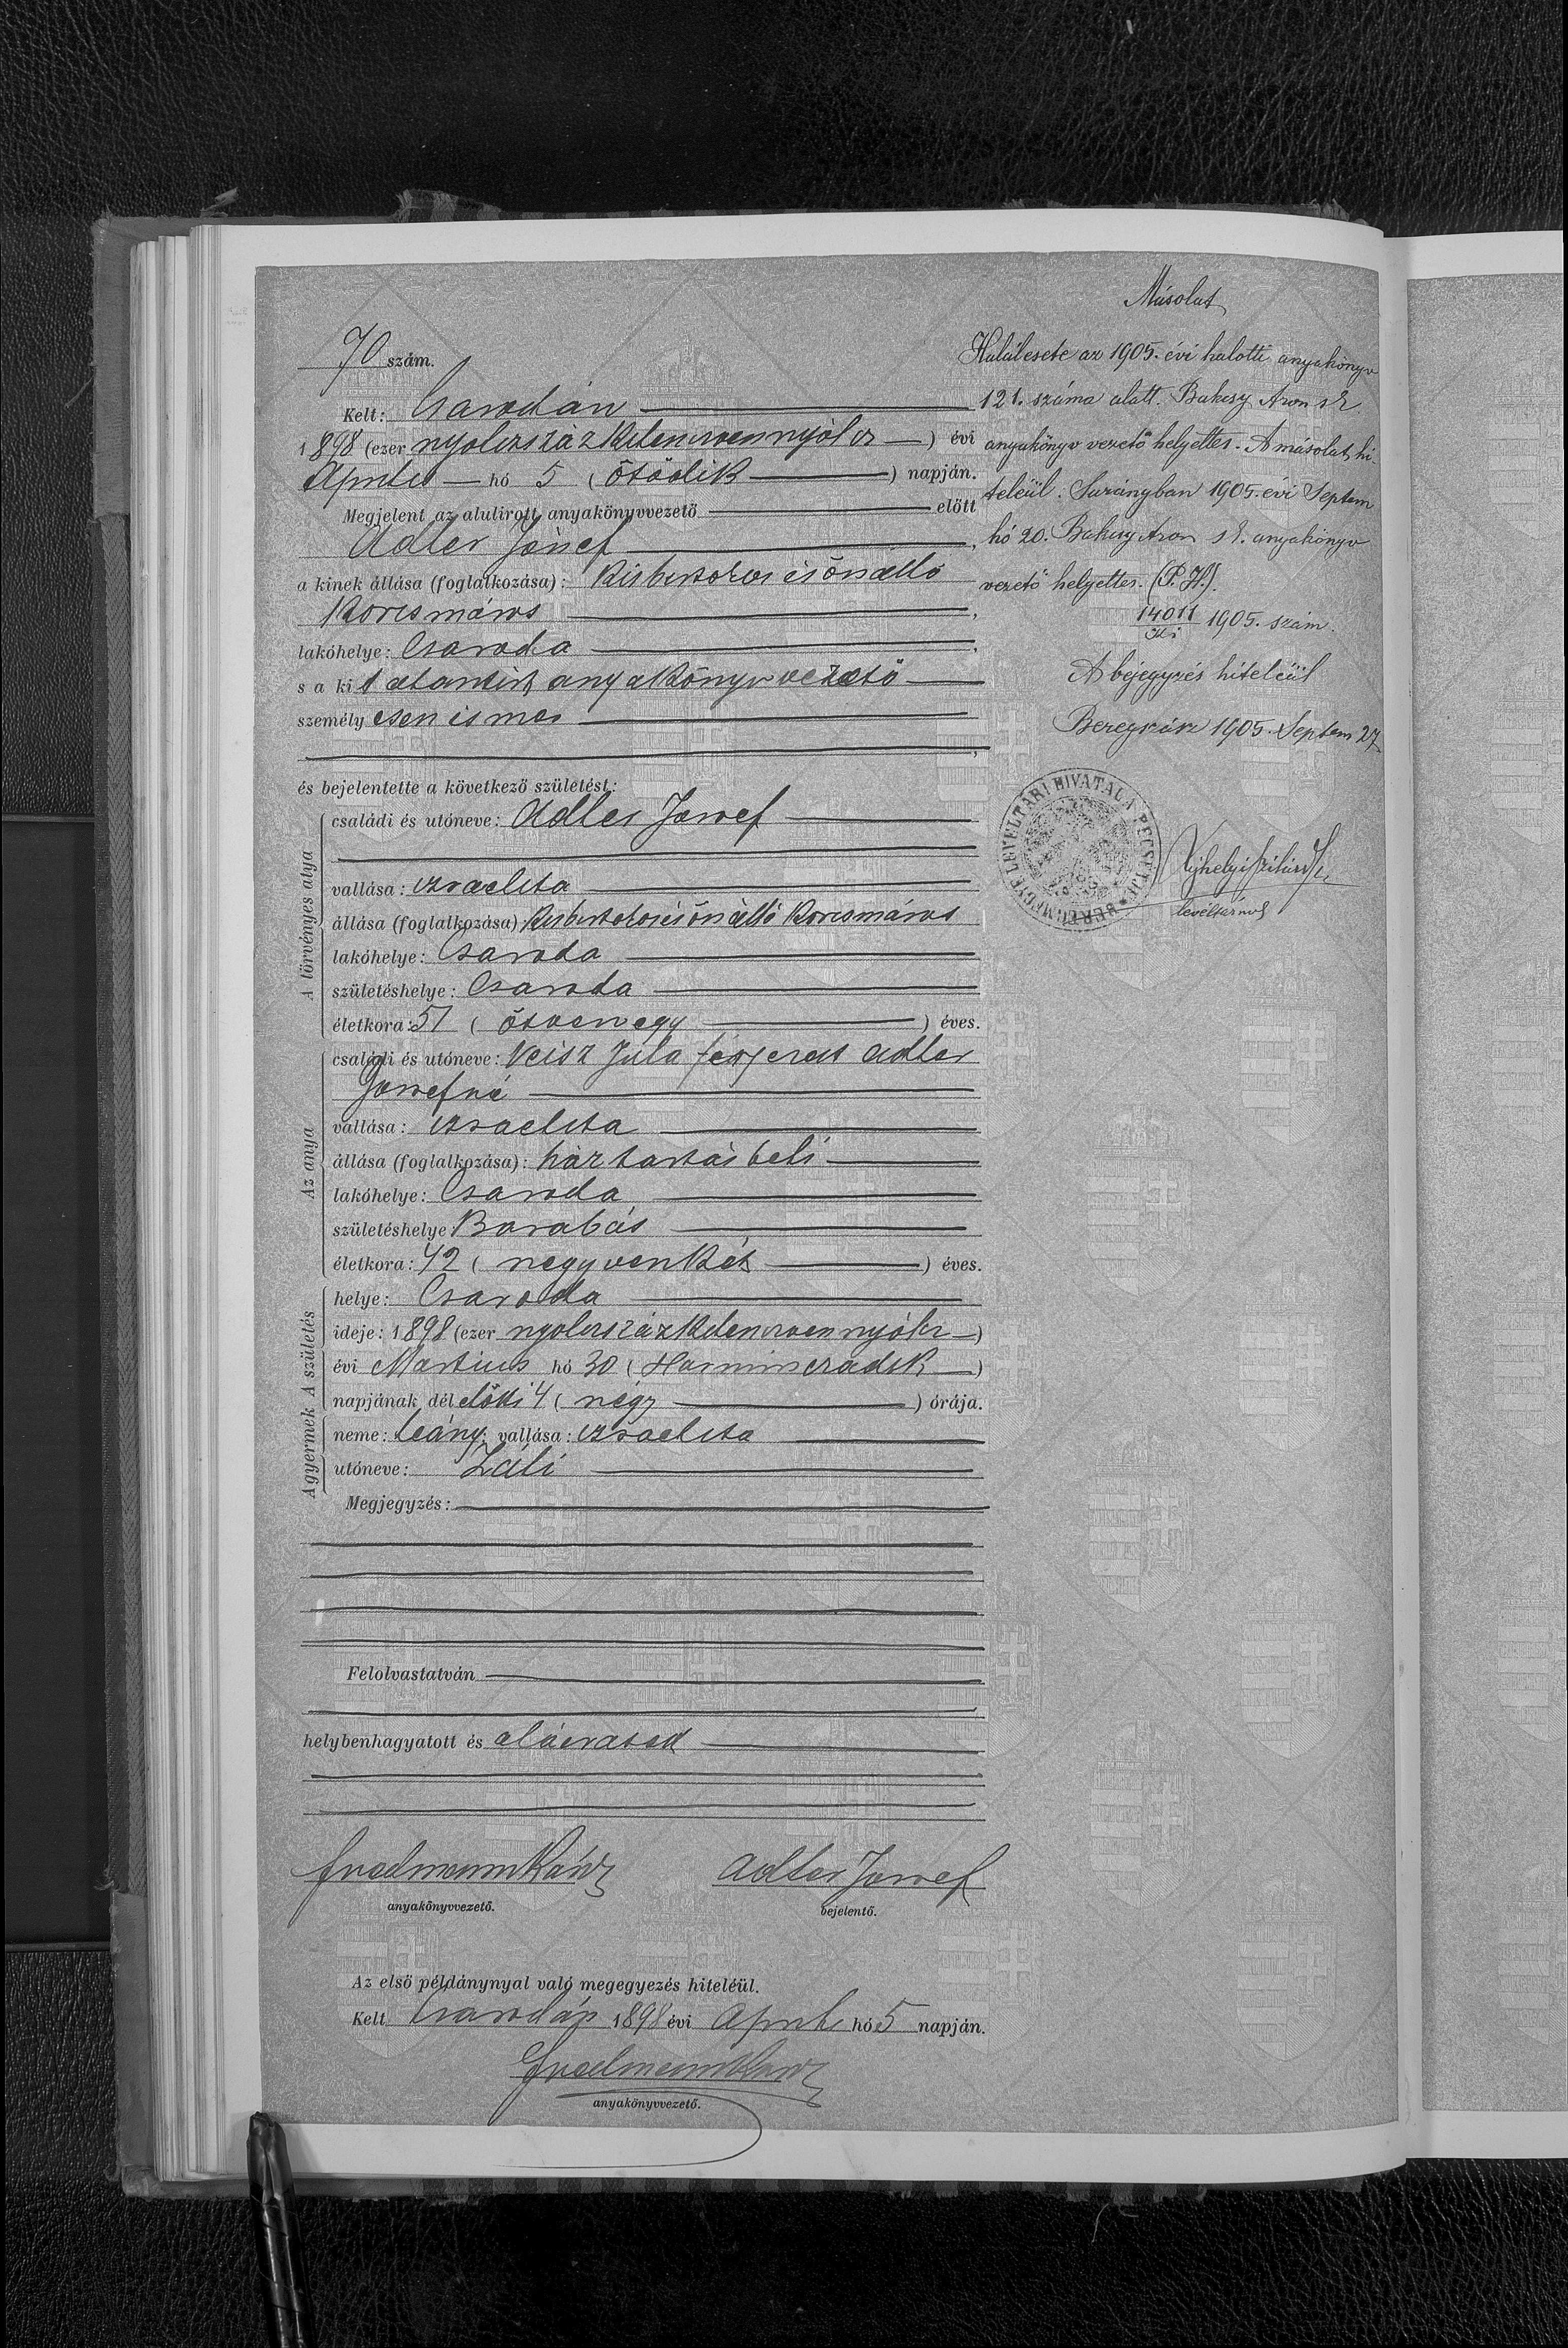 Másolat
70 szám.
Kelt: Csarodán
1898 (ezer nyolczszázkilenczvennyólcz) évi
Április hó 5 (ötödik) napján.
Megjelent az alulirott anyakönyvvezető előtt
Adler József,
a kinek állása (foglalkozása): kisbirtokos és önálló
korcsmáros,
lakóhelye: Csaroda,
s a kit alantirt anyakönyvvezető
személyesen ismer
,
és bejelentette a következő születést:
A törvényes atya
családi és utóneve: Adler József
vallása: izraelita
állása (foglalkozása): kisbirtokos és önálló korcsmáros
lakóhelye: Csaroda
születéshelye: Csaroda
életkora: 51 (ötvenegy) éves.
Az anya
családi és utóneve: Veisz Júla férjezett Adler
Józsefné
vallása: izraelita
állása (foglalkozása): háztartásbeli
lakóhelye: Csaroda
születéshelye: Barabás
életkora: 42 (negyvenkét) éves.
A születés
helye: Csaroda
ideje: 1898 (ezer nyolczszázkilenczvennyólcz)
évi Martius hó 30 (Harminczadik)
napjának délelőtti 4 (négy) órája.
A gyermek
neme: leány; vallása: izraelita
utóneve: Záli
Megjegyzés:
Felolvastatván
helybenhagyatott és aláiratott
Adler József
anyakönyvvezető.
bejelentő.
Az első példánynyal való megegyezés hiteléül.
Kelt Csarodán 1898 évi Április hó 5 napján.
anyakönyvvezető.
Halálesete az 1905. évi halotti anyakönyv
121. száma alatt. Bakcsy Áron sk
anyakönyv vezető helyettes. A másolat hi
teléül. Surányban 1905. évi Septem
hó 20. Bakcsy Áron sk. anyakönyv
vezető helyettes. (P.H.).
14011
1905. szám.
A bejegyzés hiteléül
Beregszász 1905. Septem 27
BEREGMEGYE LEVÉLTÁRI HIVATALA PECSÉTJE
levéltárnok